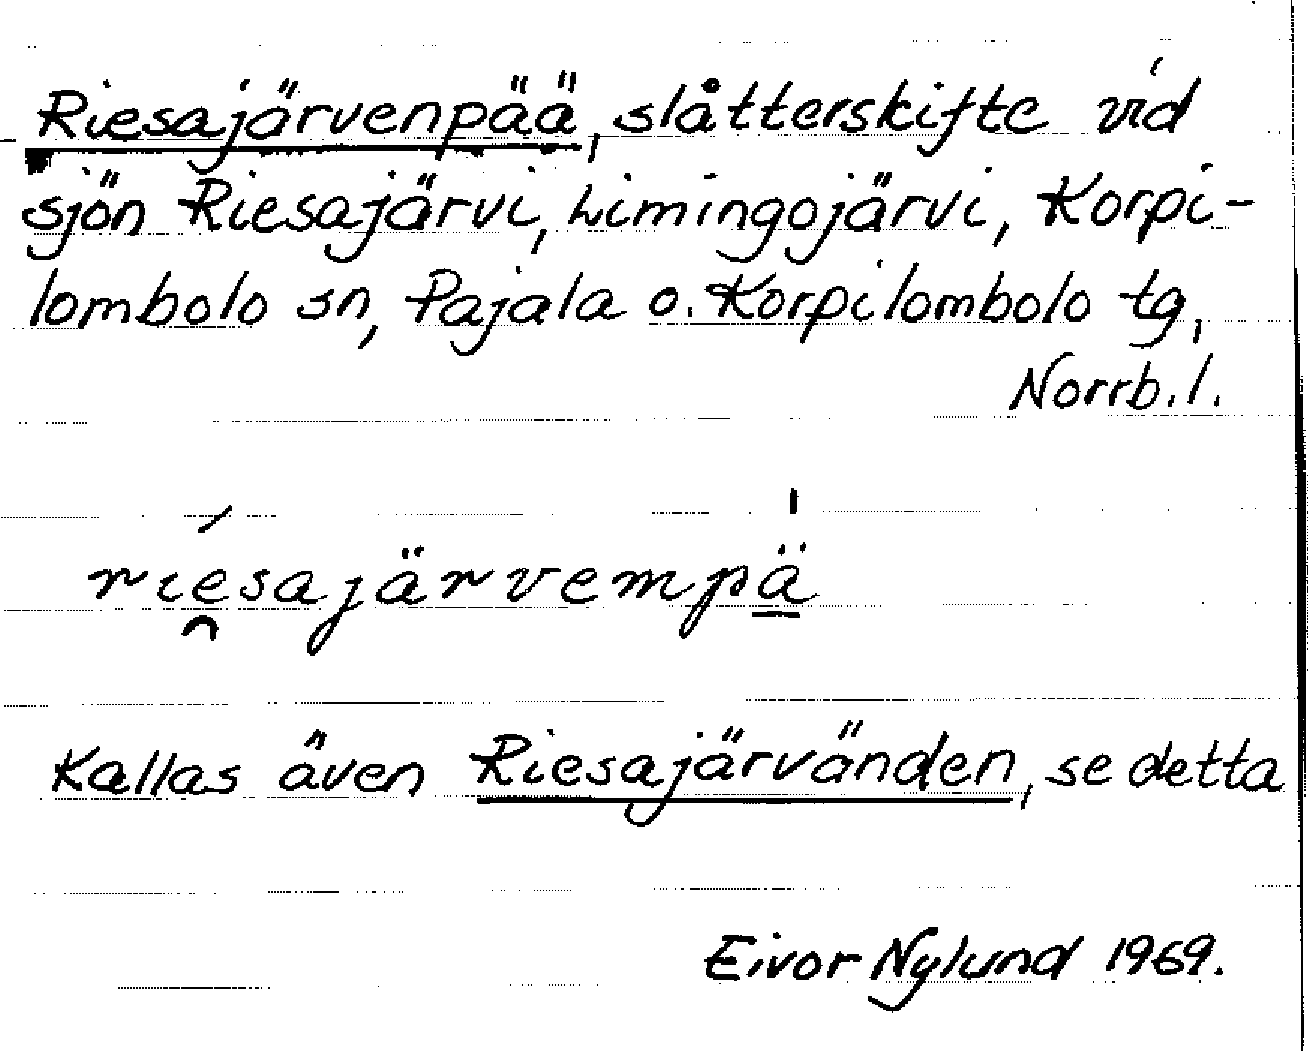 Riesajärvenpää, slåtterskifte vid
sjön Riesajärvi, Limingojärvi, Korpi-
lombolo sn, Pajala o. Korpilombolo tg,
Norrb. l.
riesajärvempä
Kallas även Riesajärvänden, se detta
Eivor Nylund 1969.